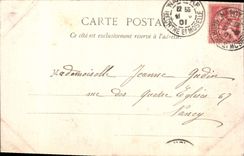 CARTE POSTALE
Ce côté est exclusivement réservé à l'adresse
MEURTHE ET MOSELLE
01
Mademoiselle Jeanne Gudin
rue des Quatre Églises 67
Nancy